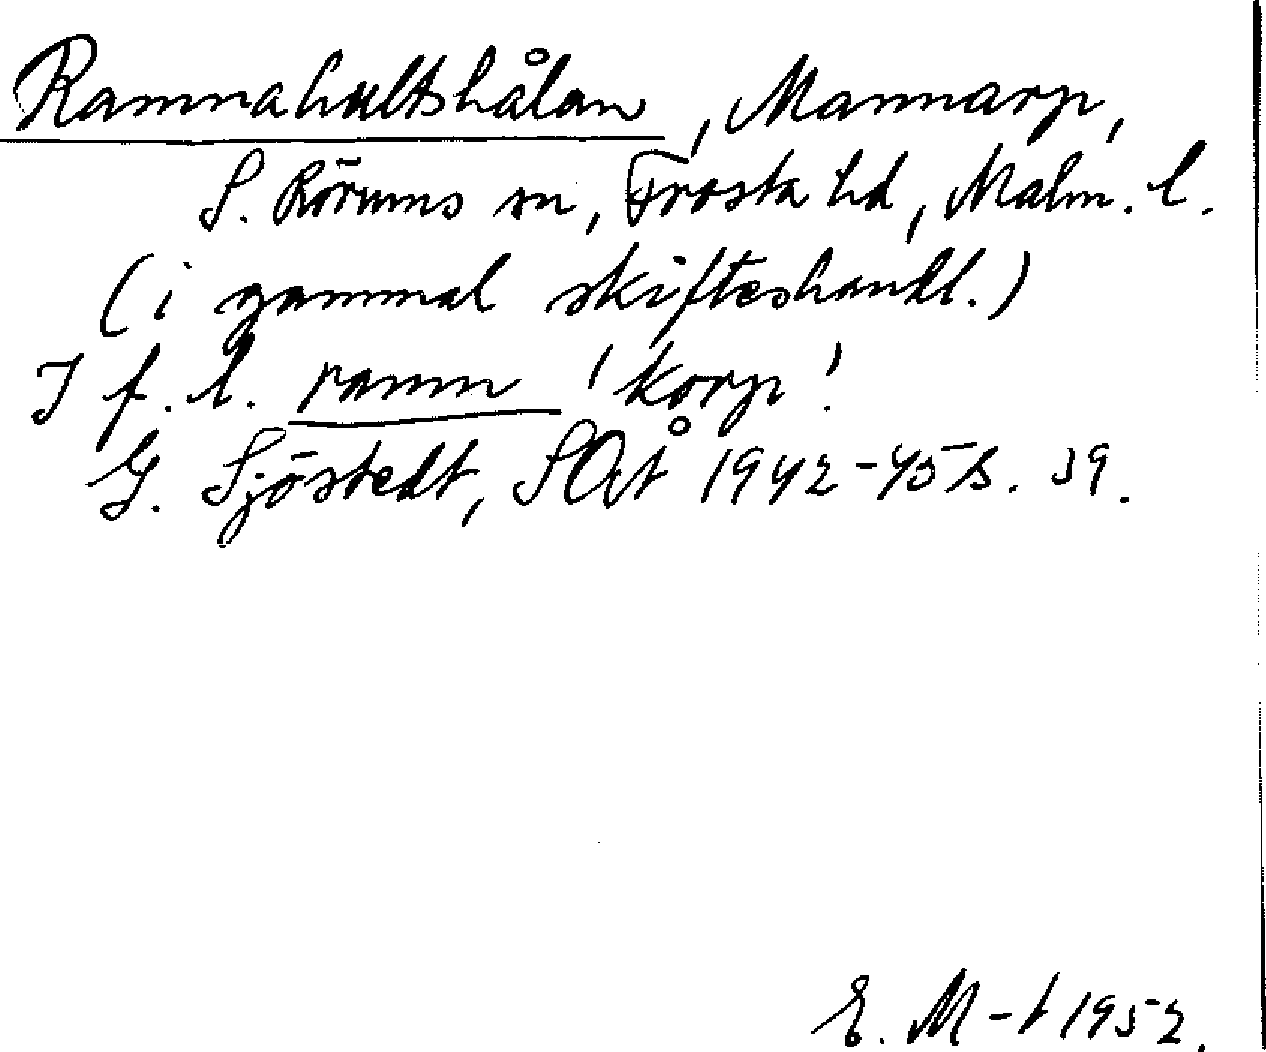 Ramnahultshålan, Mannarp,
S. Rörums sn, Frosta hd, Malm. l.
(i gammal skifteshandl.)
I f. l. ramn 'korp'.
G. Sjöstedt, SOÅ 1942-45 s. 39.
E. M-t 1952.